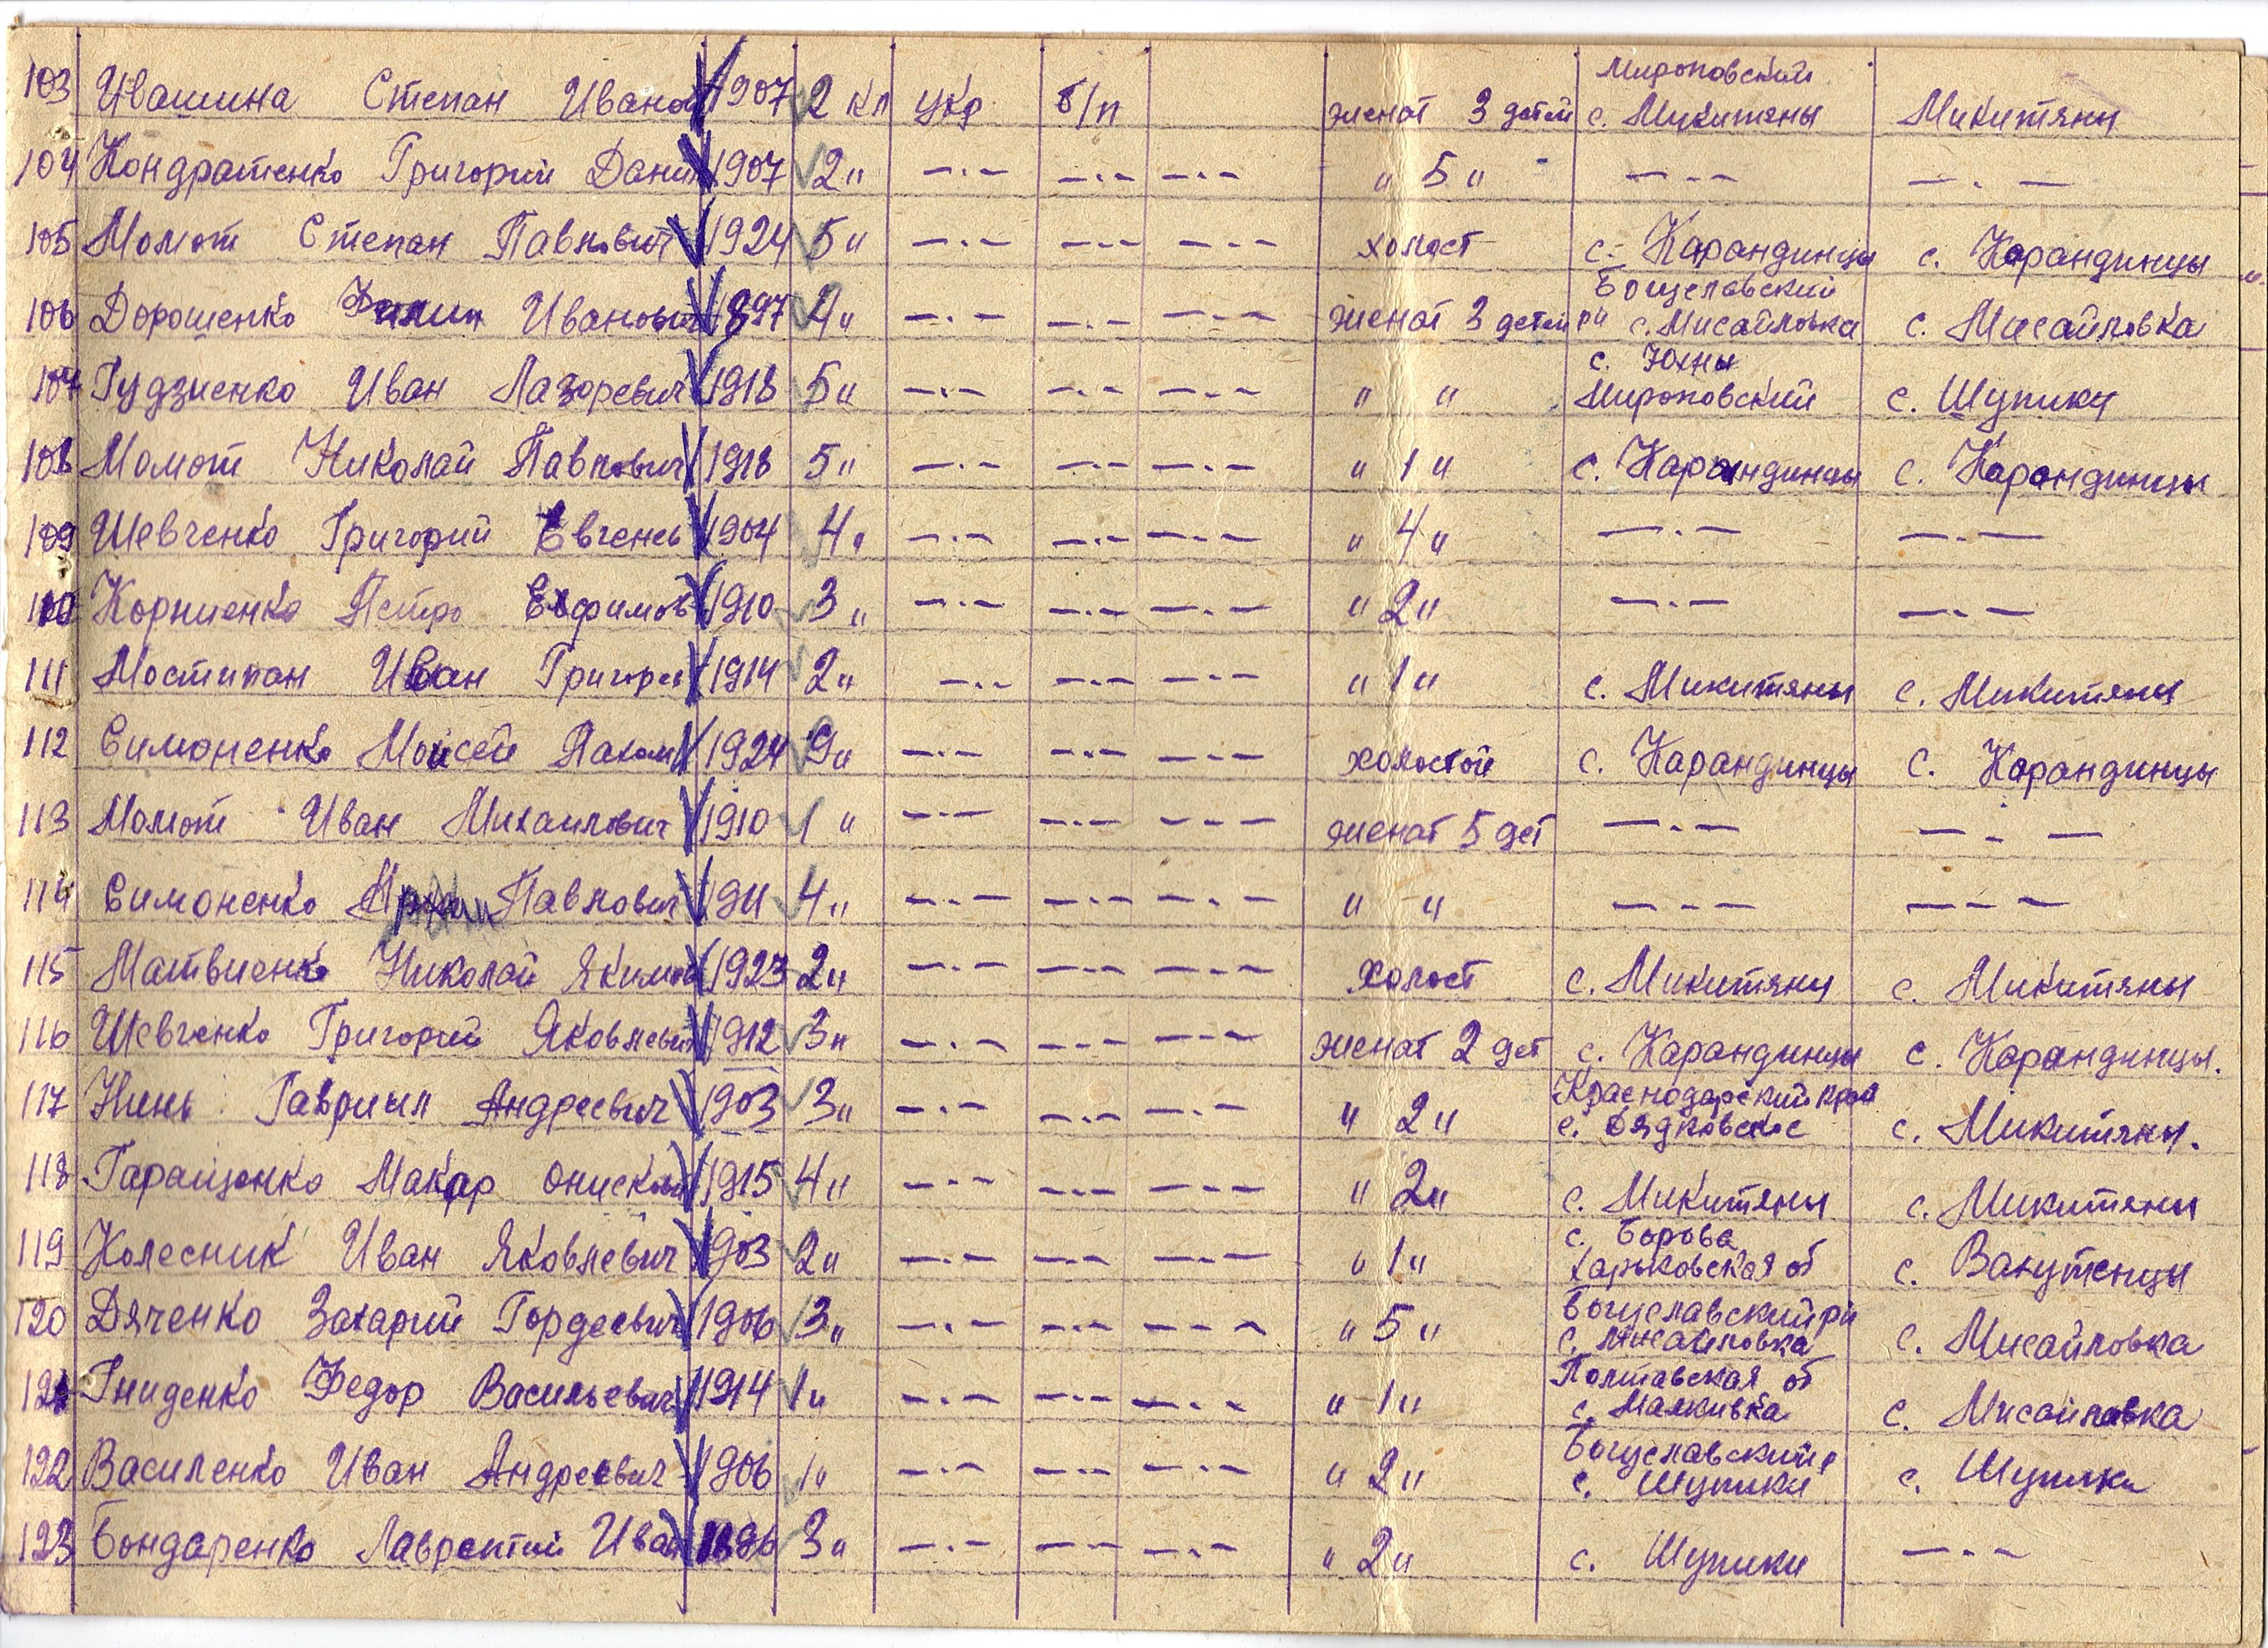 103 Ивашина Степан Иванов 1907 2 кл укр б/п женат 3 детей Мироновский с. Микитяны Микитяны
104 Кондратенко Григорий Дани 1907 2 " —·— —·— —·— " 5 " —·— —·—
105 Момот Степан Павлович 1924 5 " —·— —·— —·— холост с. Карандинцы с. Карандинцы
106 Дорошенко Филип Иванович 1897 4 " —·— —·— —·— женат 3 детей Богуславский рн с. Мисайловка с. Мисайловка
107 Гудзиенко Иван Лазоревич 1918 5 " —·— —·— —·— " " с. Юхны Мироновский с. Шупики
108 Момот Николай Павлович 1918 5 " —·— —·— —·— " 1 " с. Карандинцы с. Карандинцы
109 Шевченко Григорий Евгень 1904 4 " —·— —·— —·— " 4 " —·— —·—
110 Корниенко Петро Ефимов 1910 3 " —·— —·— —·— " 2 " —·— —·—
111 Мостипан Иван Григорев 1914 2 " —·— —·— —·— " 1 " с. Микитяны с. Микитяны
112 Симоненко Мойсей Пахом 1924 9 " —·— —·— —·— холостой с. Карандинцы с. Карандинцы
113 Момот Иван Михаилович 1910 1 " —·— —·— —·— женат 5 дет —·— —·—
114 Симоненко Павлович 1911 4 " —·— —·— —·— " " —·— —·—
115 Матвиенко Николай Якимов 1923 2 " —·— —·— —·— холост с. Микитяны с. Микитяны
116 Шевченко Григорий Яковлевич 1912 3 " —·— —·— —·— женат 2 дет с. Карандинцы с. Карандинцы.
117 Нинь Гавриил Андреевич 1903 3 " —·— —·— —·— " 2 " Краснодарский край с. Дядковское с. Микитяны.
118 Гаращенко Макар Онисков 1915 4 " —·— —·— —·— " 2 " с. Микитяны с. Микитяны
119 Колесник Иван Яковлевич 1903 2 " —·— —·— —·— " 1 " с. Борова Харьковская об с. Вахутенцы
120 Дяченко Захарий Гордеевич 1906 3 " —·— —·— —·— " 5 " Богуславский рн с. Мисайловка с. Мисайловка
121 Гниденко Федор Васильевич 1914 1 " —·— —·— —·— " 1 " Полтавская об с. Малкивка с. Мисайловка
122 Василенко Иван Андреевич 1906 1 " —·— —·— —·— " 2 " Богуславский р с. Шупики с. Шупики
123 Бондаренко Лаврентий Иван 1896 3 " —·— —·— —·— " 2 " с. Шупики —·—